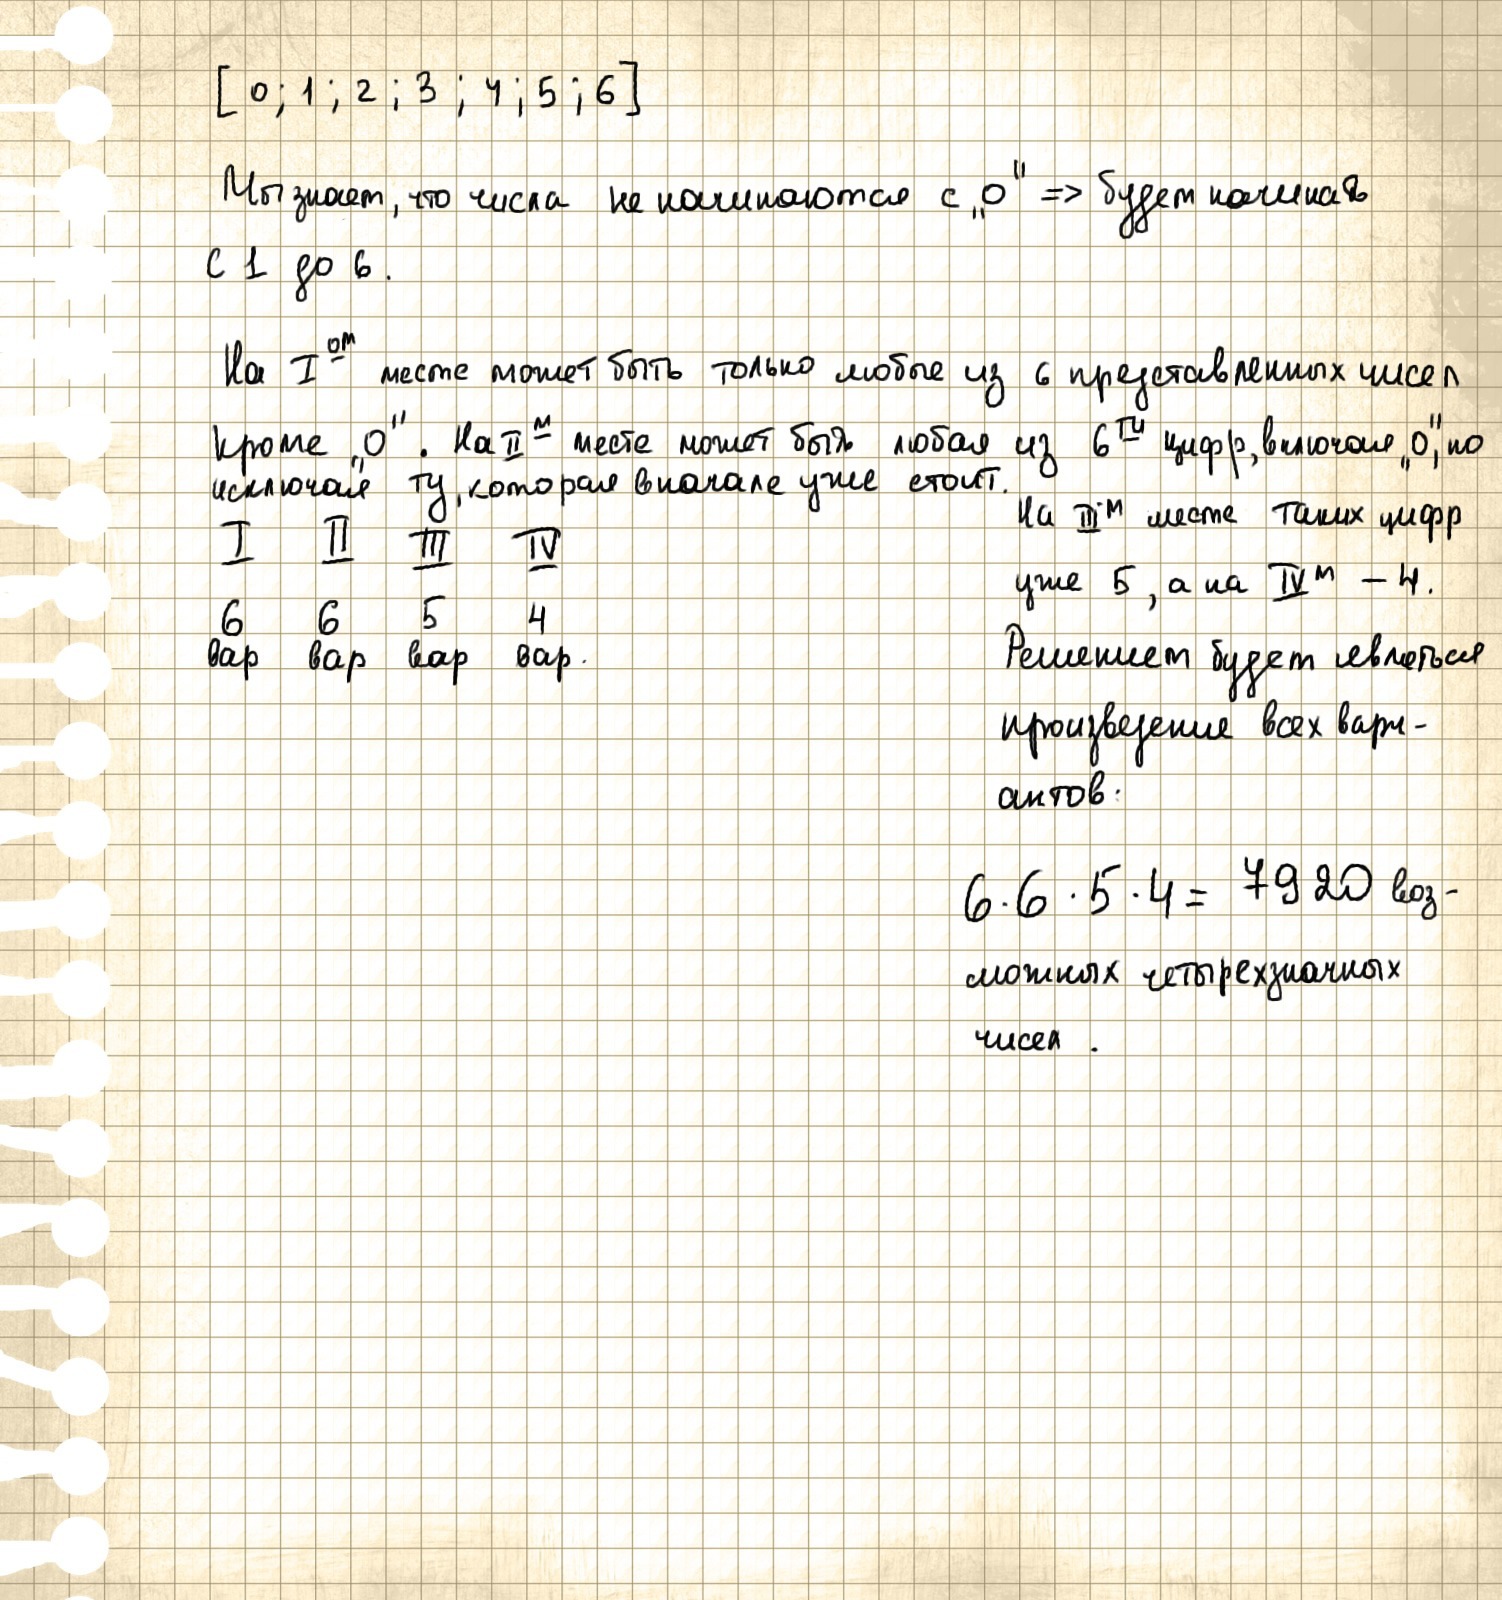 [0; 1; 2; 3; 4; 5; 6]
Мы знаем, что числа не начинаются с „0" => будем начинать
с 1 до 6.
На I ом месте может быть только любые из 6 представленных чисел
кроме „0". На II м месте может быть любая из 6 ти цифр, включая „0", но
исключая ту, которая вначале уже стоит.
На III м месте таких цифр
уже 5, а на IV м – 4.
I II III IV
6 6 5 4
вар вар вар вар.
Решением будет являться
произведение всех вари-
антов:
6·6·5·4 = 7920 воз-
можных четырехзначных
чисел.